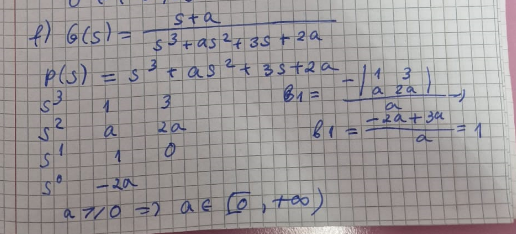 f) G(s) = (s+a)/(s³+as²+3s+2a)
P(s) = s³+as²+3s+2a
s³ 1 3
s² a 2a
s¹ 1 0
s⁰ -2a
b1 = -|1 3; a 2a|/a
b1 = (-2a+3a)/a = 1
a ≥ 0 => a ∈ [0, +∞)